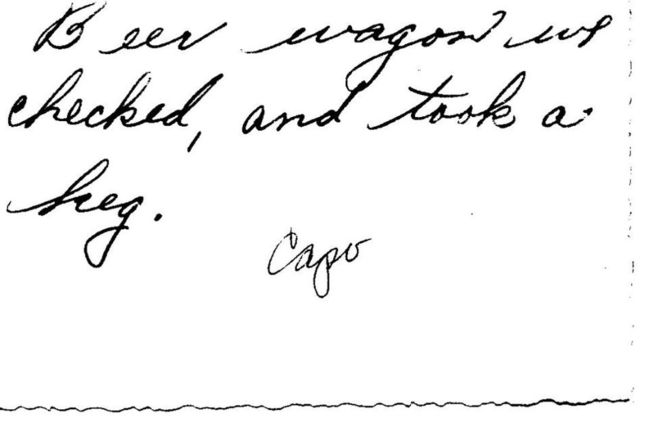 Beer wagon we
checked, and took a
keg.
Capo